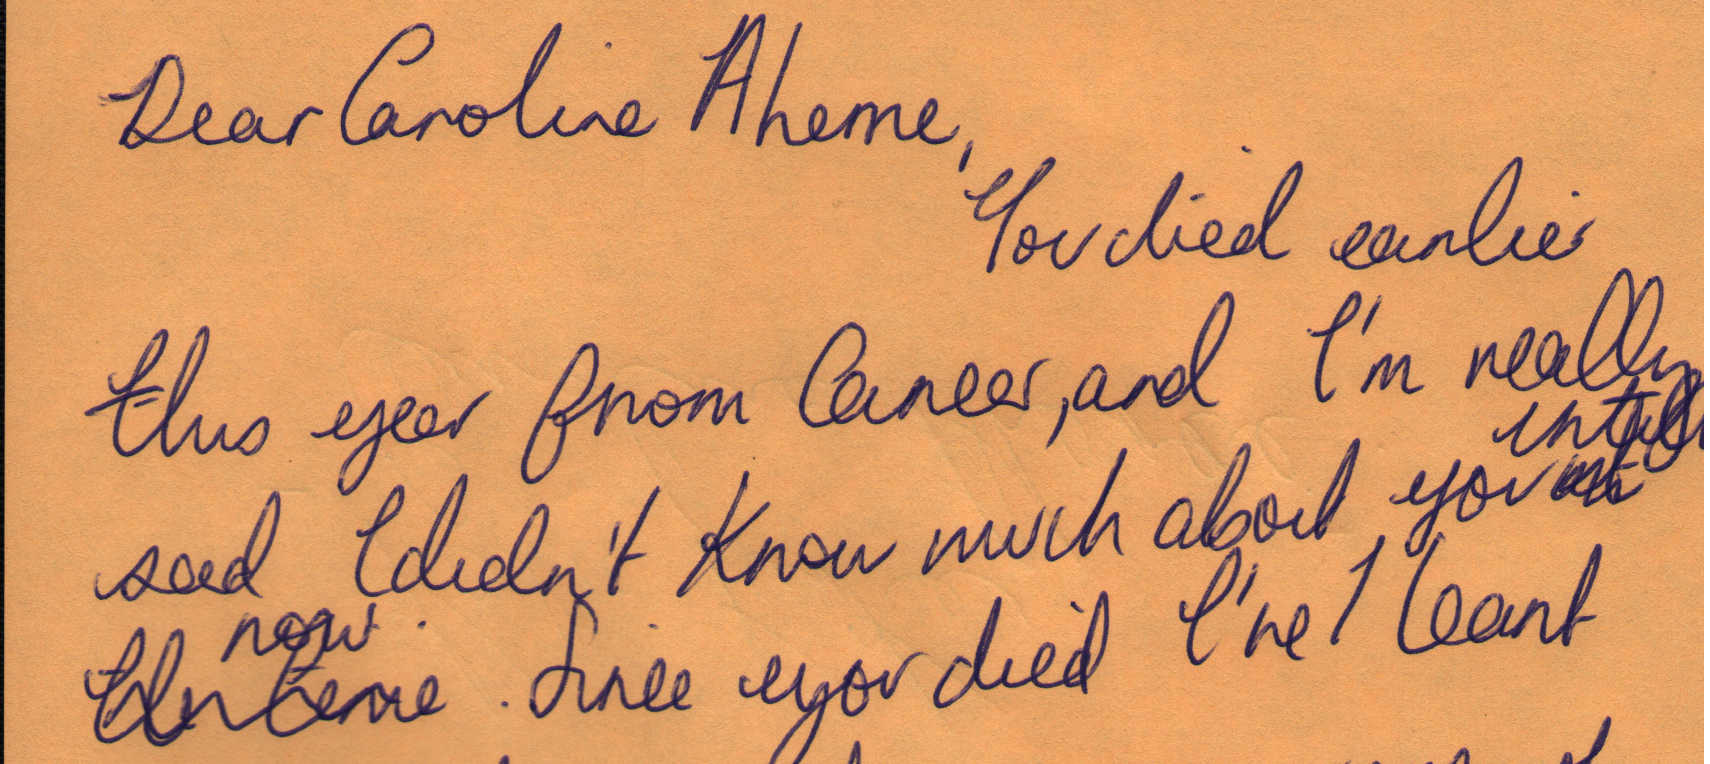 Dear Caroline Aherne,
You died earlier
this year from Cancer, and I'm really
sad I didn't know much about you until
now. Since you died I've learnt